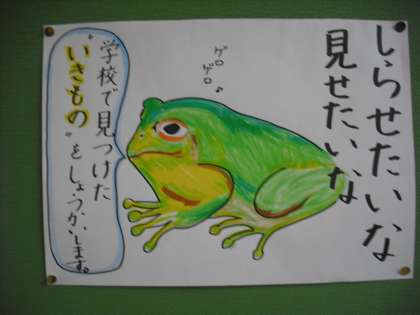 しらせたいな
見せたいな
ゲロ
ゲロ♪
学校で見つけた
“いきもの”
をしょうかいします。